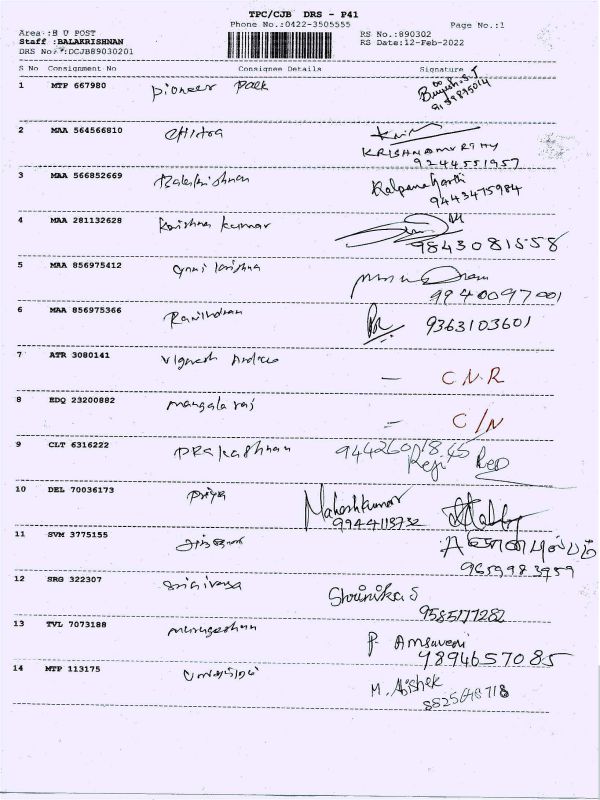 TPC/CJB DRS - P41
Phone No.:0422-3505555
Page No.:1
Area :B U POST
Staff :BALAKRISHNAN
DRS No.:DCJB89030201
RS No.:890302
RS Date:12-Feb-2022
S No Consignment No Consignee Details Signature
1 MTP 667980 Pioneer Park
2 MAA 564566810 Chitra
KRISHNAMURTHY
9244551957
3 MAA 566852669 Balakrishnan
9443475984
4 MAA 281132628 Krishna kumar
9843081558
5 MAA 856975412 krishna
9940097001
6 MAA 856975366 Ravindran 9363103601
7 ATR 3080141 Vignesh — C.N.R
8 EDQ 23200882 mangala raj — C/N
9 CLT 6316222 PRakashnan
10 DEL 70036173 Priya Maheshkumar
9944118732
11 SVM 3775155
9659983959
12 SRG 322307 Srinivasa Shrinikas
9585177282
13 TVL 7073188 murugeshan P. Amsaveni
9894657085
14 MTP 113175 M. Abishek